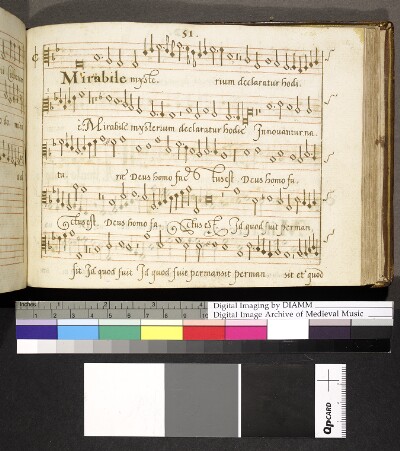 51.
Mirabile myste. rium declaratur hodi.
Mirabile mysterium declaratur hodie Innovantur na.
tu. re Deus homo fa. ctus est Deus homo fa.
ctus est. Deus homo fa. ctus est Id quod fuit perman
sit Id quod fuit Id quod fuit permansit perman. sit et quod
inches 1 2 3 4
1 2 3 4 5 6 7 8 9 10
Digital Imaging by DIAMM
Digital Image Archive of Medieval Music
QPCARD